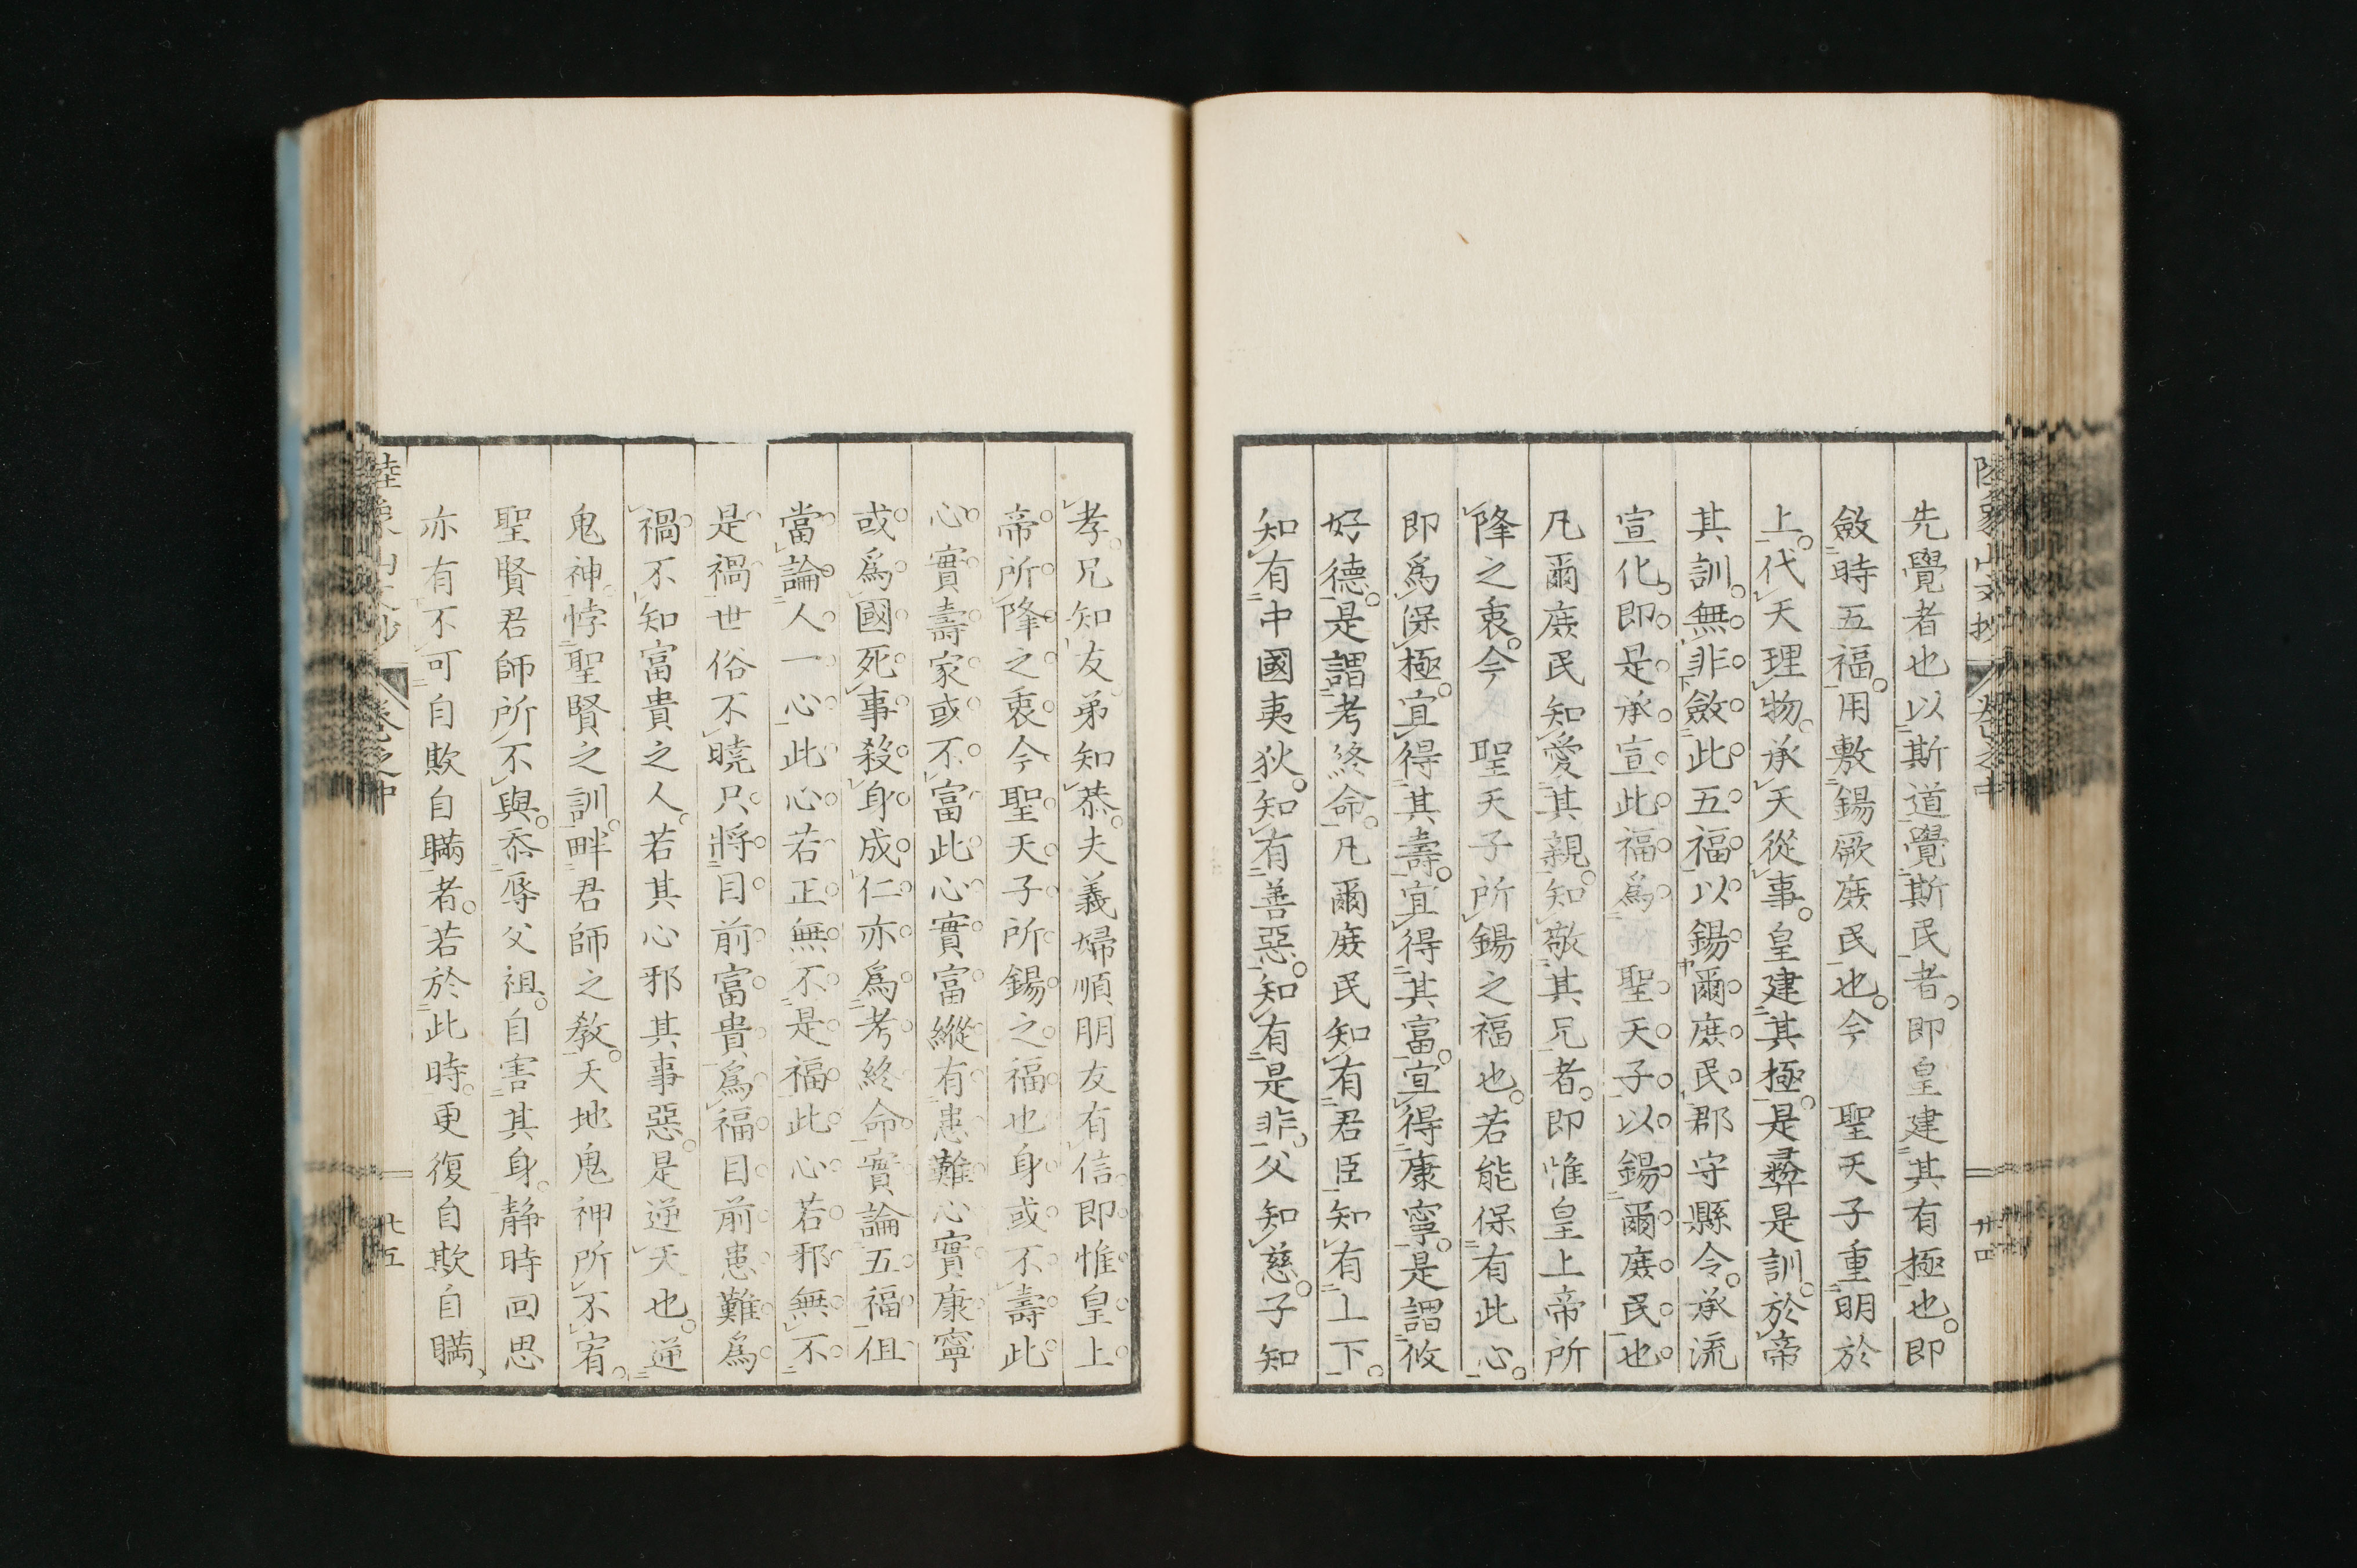 先覺者也以斯道覺斯民者即皇建其有極也即
斂時五福用敷錫厥庶民也今 聖天子重明於
上代天理物承天從事皇建其極是彝是訓於帝
其訓無非斂此五福以錫爾庶民郡守縣令承流
宣化即是承宣此福爲 聖天子以錫爾庶民也
凡爾庶民知愛其親知敬其兄者即惟皇上帝所
降之衷今 聖天子所錫之福也若能保有此心
即爲保極宜得其壽宜得其富宜得康寧是謂攸
好德是謂考終命凡爾庶民知有君臣知有上下
知有中國夷狄知有善惡知有是非父知慈子知
孝兄知友弟知恭夫義婦順朋友有信即惟皇上
帝所降之衷今聖天子所錫之福也身或不壽此
心實壽家或不富此心實富縱有患難心實康寧
或爲國死事殺身成仁亦爲考終命實論五福但
當論人一心此心若正無不是福此心若邪無不
是禍世俗不曉只將目前富貴爲福目前患難爲
禍不知富貴之人若其心邪其事惡是逆天也逆
鬼神悖聖賢之訓畔君師之教天地鬼神所不宥
聖賢君師所不與忝辱父祖自害其身靜時回思
亦有不可自欺自瞞者若於此時更復自欺自瞞
陸象山文抄 卷之中 廿四
陸象山文抄 卷之中 廿五